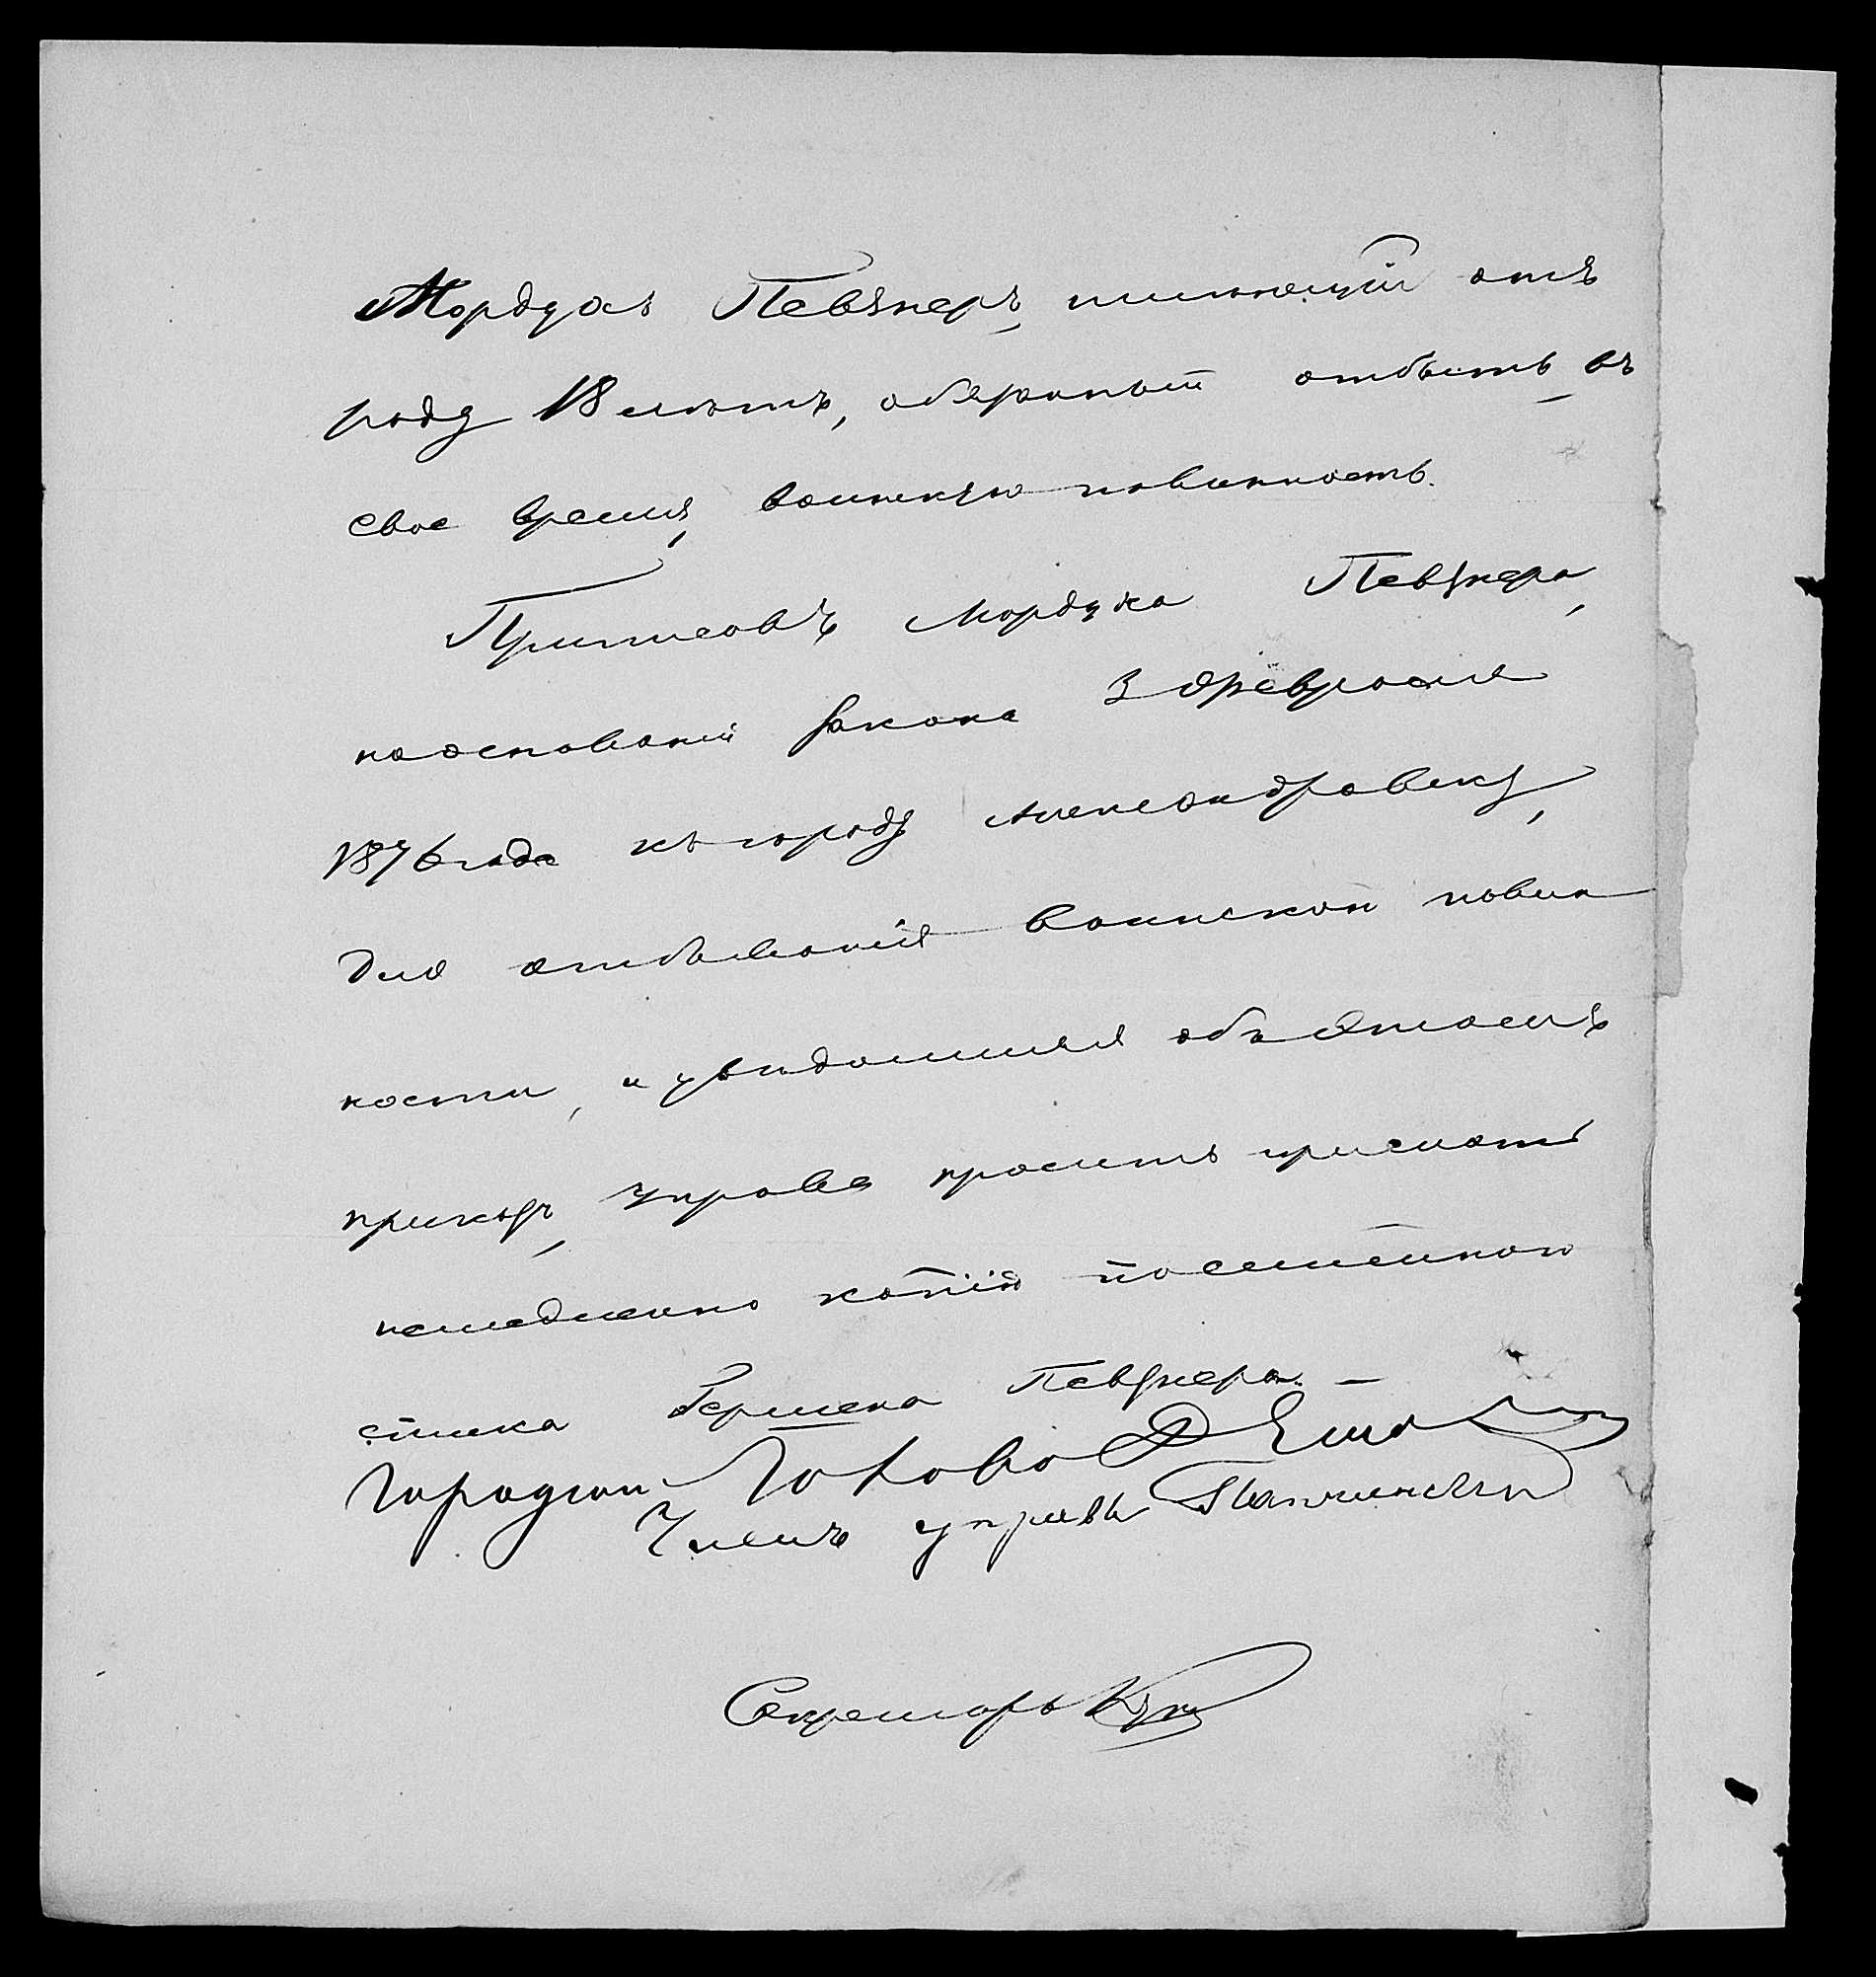 Мордухъ Певзнеръ, имѣющій отъ
роду 18 лѣтъ, обязанный отбыть, въ
свое время, воинскую повинность.
Приписавъ Мордуха Певзнера,
на основаніи закона 3 февраля
1876 года къ городу Александровску,
для отбыванія воинской повин
ности, и увѣдомляя объ этомъ
приказъ, Управа проситъ прислать
немедленно копію посемейнаго
списка Гершена Певзнера. —
Городской Голова
Членъ управы
Секретарь